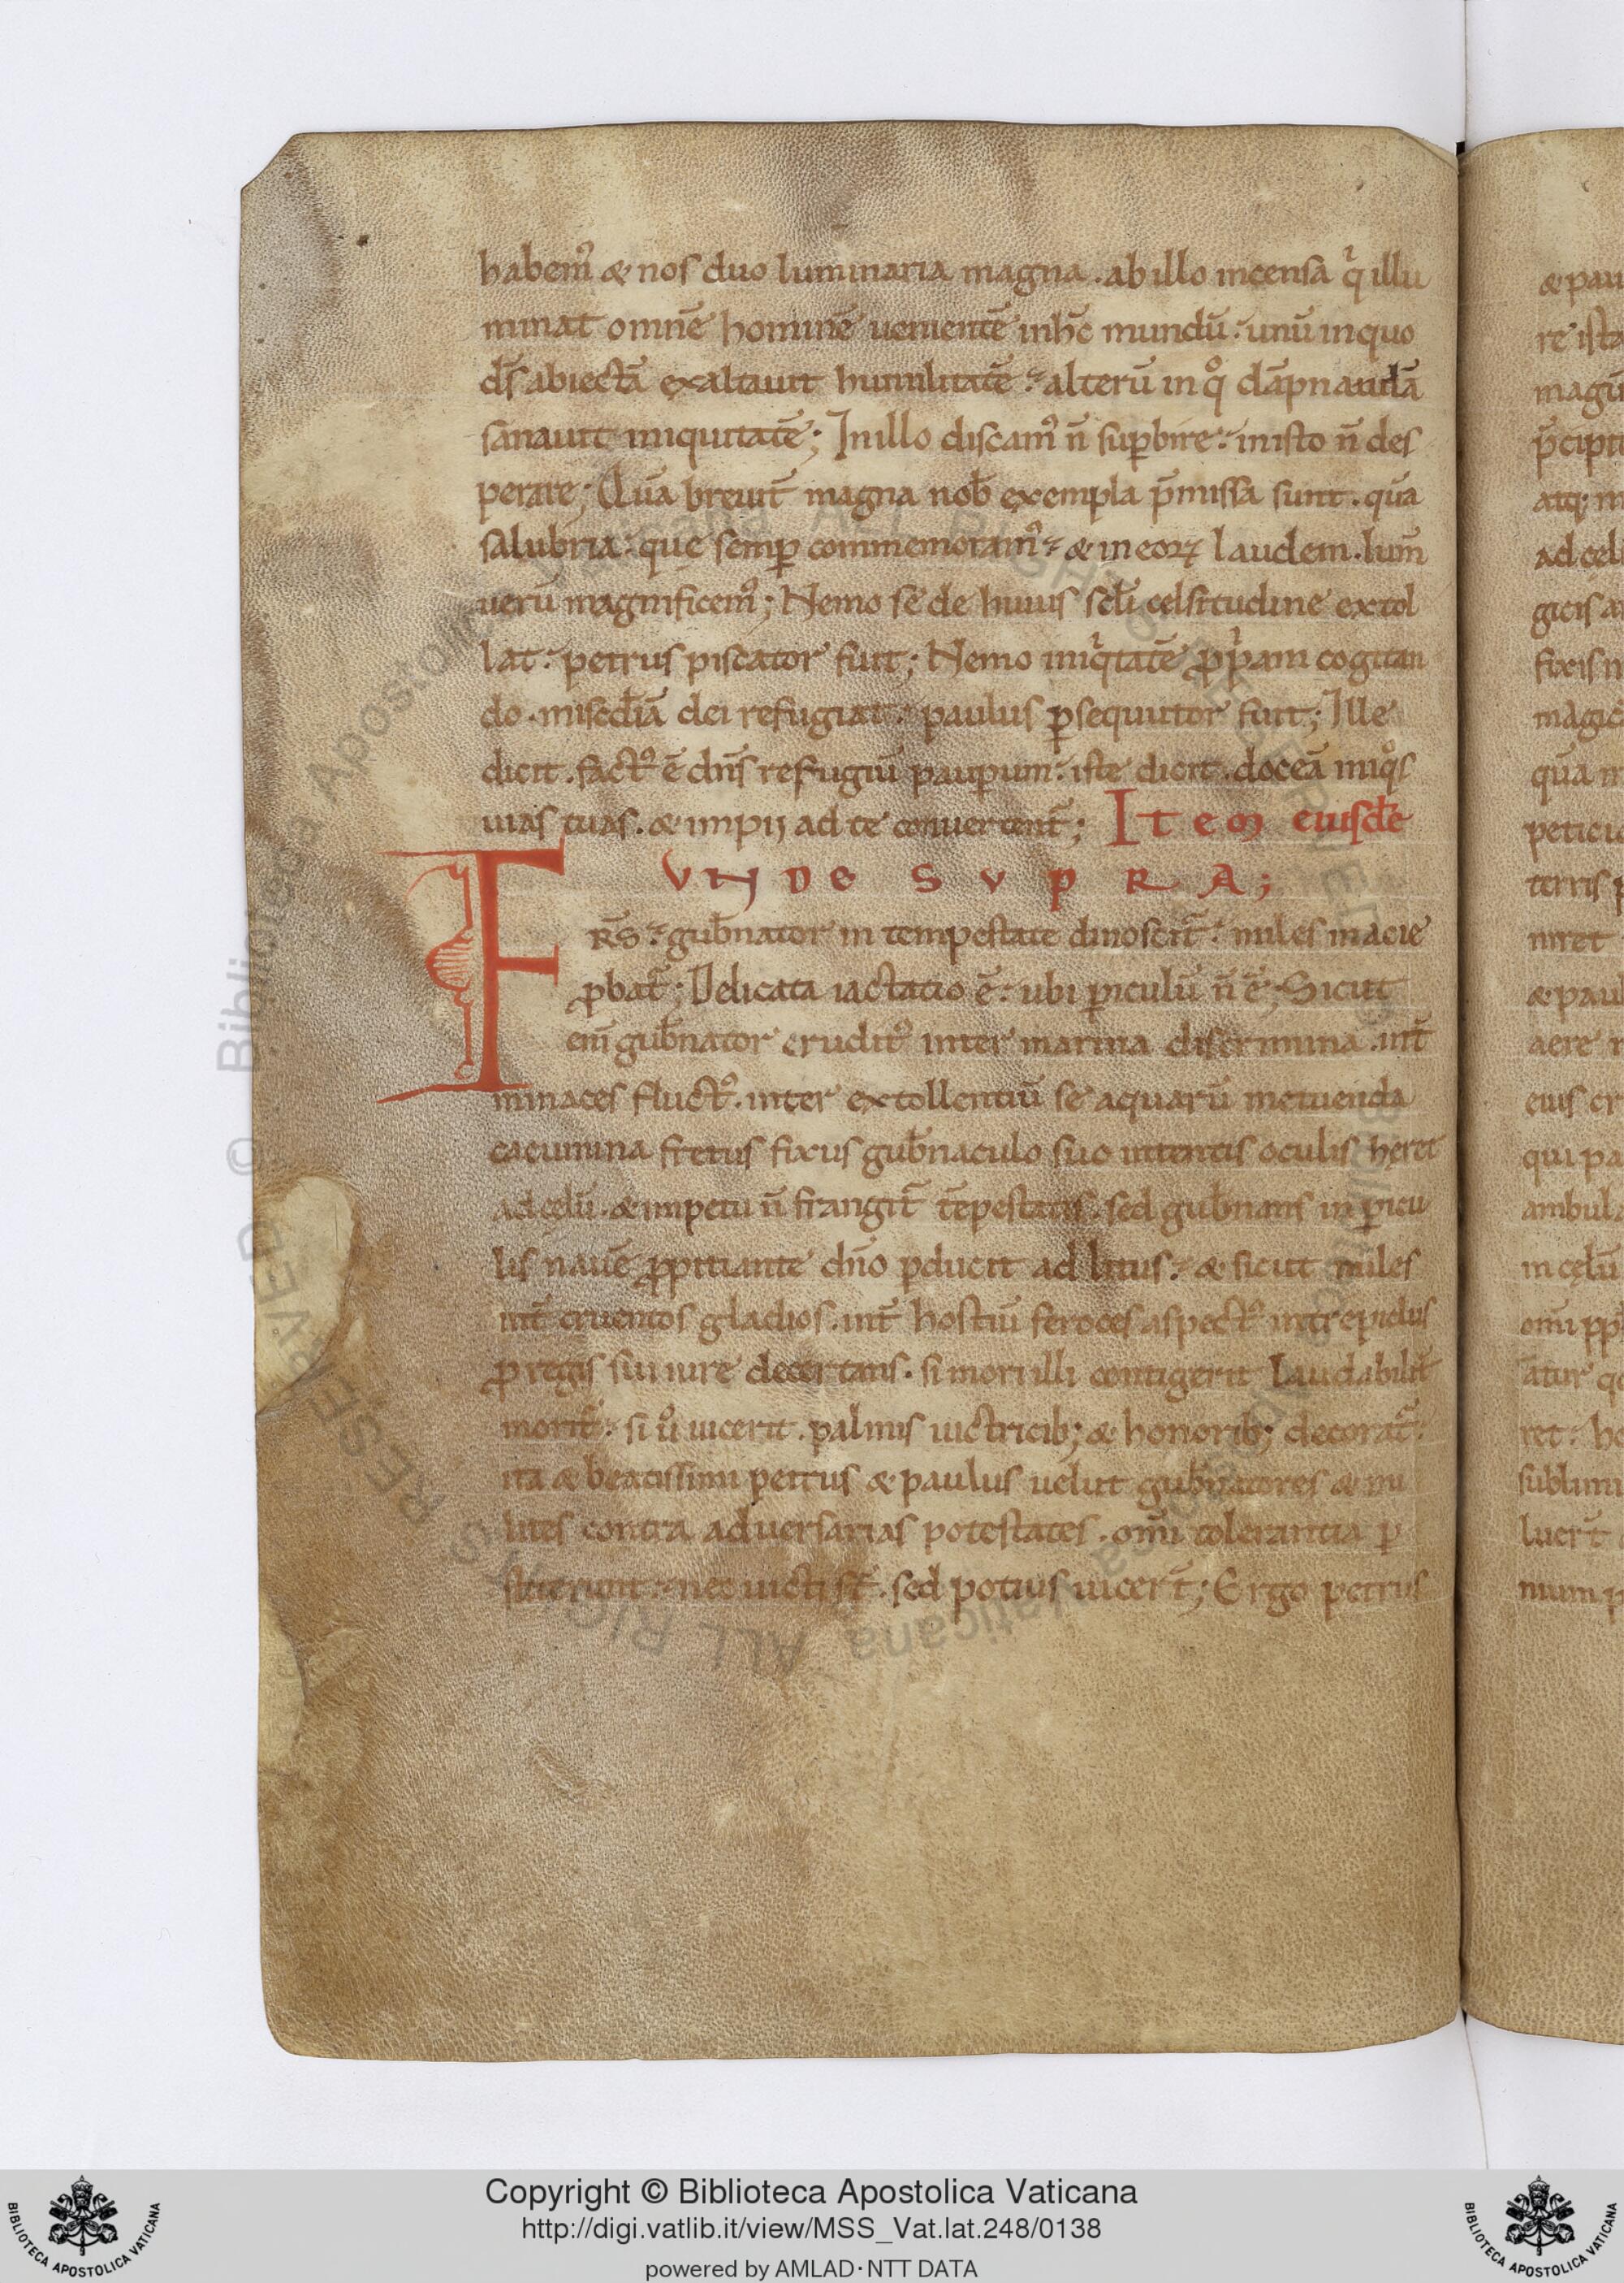 habem᷒ & nos duo luminaria magna . ab illo incensa qͥ illu
minat omnē hominē uenientē in hc̄ mundū . unū in quo
ds̄ abiectā exaltauit humilitatē . alterū in qͦ dāpnandā
sanauit iniquitatē ; In illo discam᷒ n̄ supbire . in isto n̄ des
perare ; Quā breuit̄ magna nob̄ exempla p̄missa sunt . quā
salubria . que semp̄ commemoram᷒ & in eoꝝ laudem . lum̄
uerū magnificem᷒ ; Nemo sē de huius scl̄i celsitudine extol
lat . petrus piscator fuit ; Nemo iniqͥtatē ꝓpͥam cogitan
do . misc̄diā dei refugiat . paulus ꝑsequutor fuit ; Ille
dicit . fact᷒ ē dn̄s refugiū pauꝑum . iste dicit . doceā iniqͦs
uias tuas . & impij ad te conuertent̄ ; Item eiusdē
VNDE SVPRA ;
FRS̄ . gub̄nator in tempestate dinoscit̄ . miles in acie
ꝓbat̄ ; Delicata iactatio ē . ubi ꝑiculū n̄ ē ; Sicut
eni̅ gub̄nator erudit᷒ inter marina discrimina . int̄
minaces fluct᷒ . inter extollentiū se aquarū metuenda
cacumina fretus fixus gub̄naculo suo intentis oculis hęret
ad cęlū . & impetu n̄ frangit̄ tēpestatis . sed gub̄nans in ꝑicu
lis nauē ꝓpitiante dn̄o ꝑducit ad litus . & sicut miles
int̄ cruentos gladios . int̄ hostiū feroces aspect᷒ intrepidus
ꝓ regis sui iure decertans . si mori illi contigerit laudabilit̄
morit̄ . si uͦ uicerit . palmis uictricib; & honorib; decorat̄ .
ita & beatissimi petrus & paulus uelut gub̄natores & mi
lites contra aduersarias potestates . om̄i tolerantia ꝑ
stiterunt . nec uicti st̄ . sed potius uicer̄t ; Ergo petrus
& pau
re ista
p̄cipi
ad cęl
gicis a
fixis n
magic
quā n
peticu
terris p
niret
& paul
aere n
eius cr
qui pa
ambula
in cęlū
ret . ho
sublimi
luer̄t
num p
Copyright © Biblioteca Apostolica Vaticana
http://digi.vatlib.it/view/MSS_Vat.lat.248/0138
powered by AMLAD·NTT DATA
BIBLIOTECA APOSTOLICA VATICANA
BIBLIOTECA APOSTOLICA VATICANA
© Biblioteca Apostolica Vaticana ALL RIGHTS RESERVED